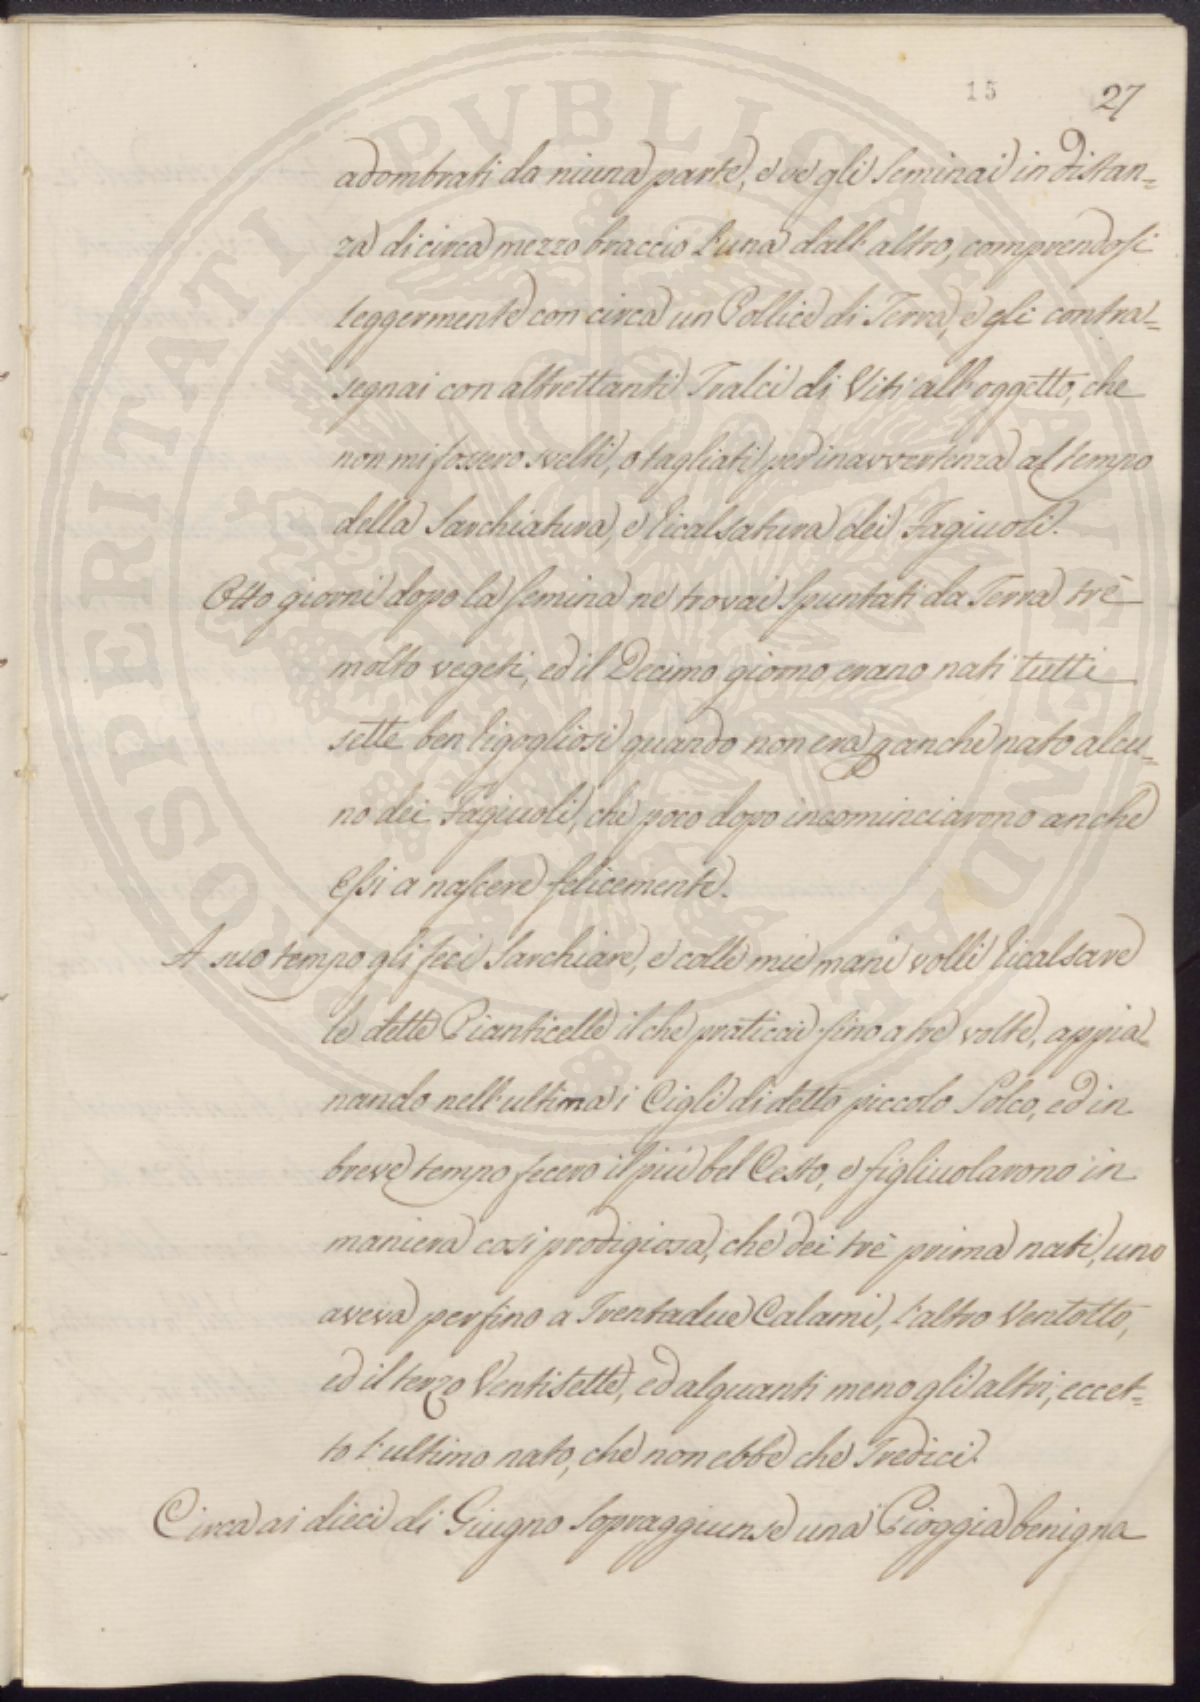 15 27
adombrati da niuna parte, e ve gli seminai in distan=
za di circa mezzo braccio l'una dall'altro, comprendosi
leggermente con circa un Pollice di Terra, e gli contra=
segnai con altrettanti Tralci di Viti all'oggetto, che
non mi fossero svelti, o tagliati per inavvertenza al tempo
della Sarchiatura, e ricalsatura dei Fagiuoli.
Otto giorni dopo la semina ne trovai spuntati da Terra trè
molto vegeti, ed il Decimo giorno erano nati tutti
sette ben rigogliosi quando non era p anche nato alcu=
no dei Fagiuoli, che poco dopo incominciarono anche
essi a nascere felicemente.
A suo tempo gli feci Sarchiare, e colle mie mani volli ricalsare
le dette Pianticelle il che praticai fino a tre volte, appia=
nando nell'ultima i Cigli di detto piccolo Solco, ed in
breve tempo fecero il più bel Cesto, e figliuolarono in
maniera così prodigiosa, che dei trè prima nati, uno
aveva perfino a Trentadue Calami, l'altro Ventotto,
ed il terzo Ventisette, ed alquanti meno gli altri, eccet=
to l'ultimo nato, che non ebbe che Tredici.
Circa ai dieci di Giugno sopraggiunse una Pioggia benigna
PROSPERITATI PUBLICAE AUGENDAE